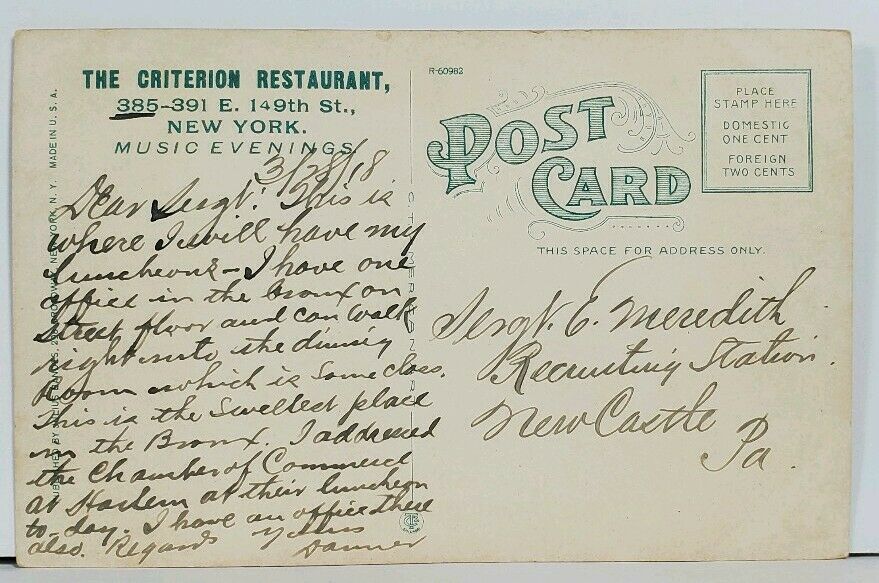 THE CRITERION RESTAURANT,
385-391 E. 149th St.,
NEW YORK.
MUSIC EVENINGS.
3/28/18
Dear Sergt: This is
where I will have my
luncheons - I have one
office in the bronx on
street floor and can walk
right into the dining
room which is some class.
This is the swellest place
in the Bronx. I addressed
the Chamber of Commerce
at Harlem at their luncheon
to-day. I have an office there
also. Regards Yours
Danner
MADE IN U. S. A.
NEW YORK, N. Y.
PUBLISHED BY
R-60982
POST
CARD
PLACE
STAMP HERE
DOMESTIC
ONE CENT
FOREIGN
TWO CENTS
THIS SPACE FOR ADDRESS ONLY.
Sergt. E. Meredith
Recruiting Station.
New Castle
Pa.